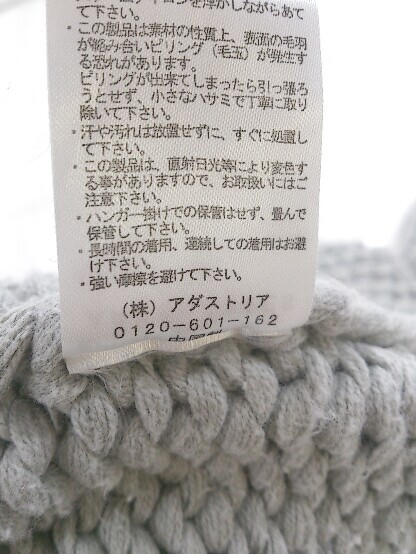 アイロンを浮かしながらあて
て下さい。
・この製品は素材の性質上、表面の毛羽
が絡み合いピリング（毛玉）が発生す
る恐れがあります。
ピリングが出来てしまったら引っ張ろ
うとせず、小さなハサミで丁寧に取り
除いて下さい。
・汗や汚れは放置せずに、すぐに処置し
て下さい。
・この製品は、直射日光等により変色す
る事がありますので、お取扱いにはご
注意下さい。
・ハンガー掛けでの保管はせず、畳んで
保管して下さい。
・長時間の着用、連続しての着用はお避
け下さい。
・強い摩擦を避けて下さい。
（株）アダストリア
0120-601-162